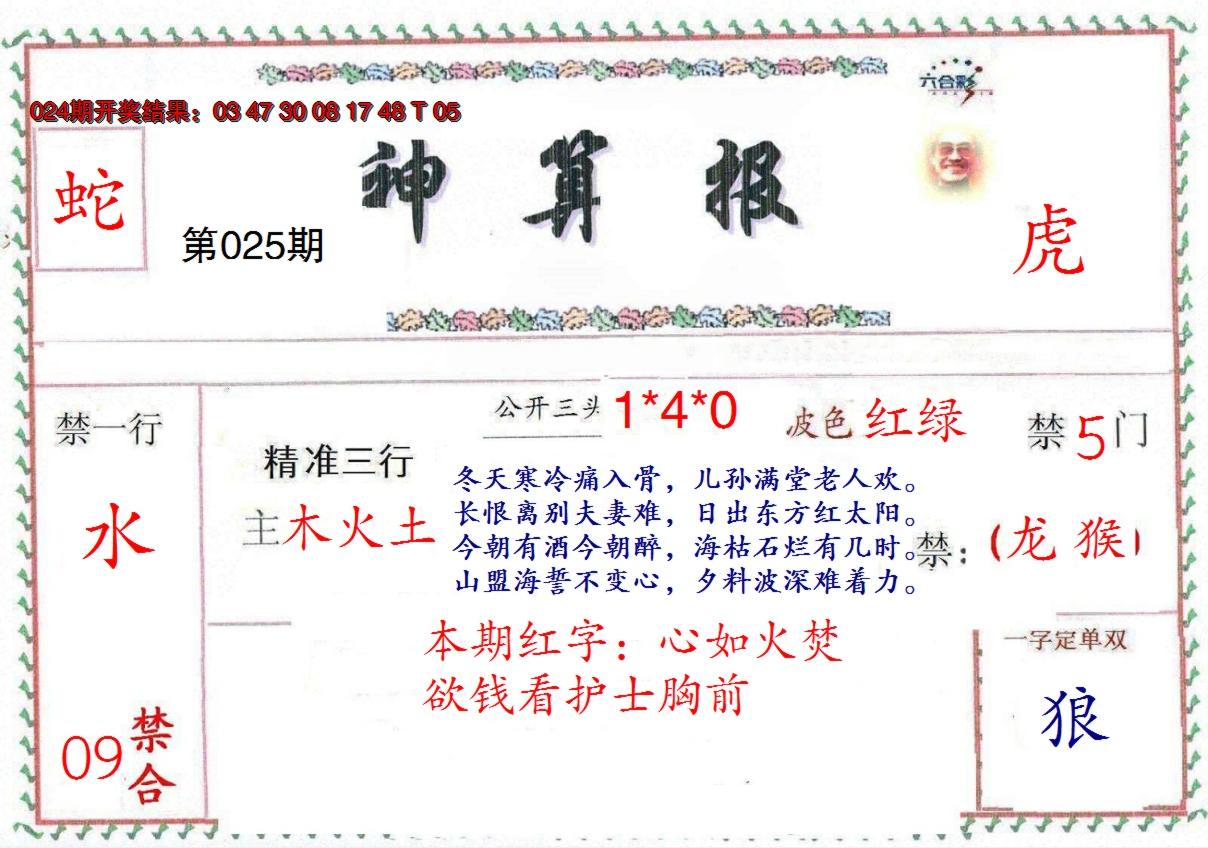 六合彩
024期开奖结果：03 47 30 08 17 48 T 05
神算报
蛇
第025期
虎
禁一行
公开三头 1*4*0
波色 红绿
禁 5 门
精准三行
主 木火土
水
冬天寒冷痛入骨，儿孙满堂老人欢。
长恨离别夫妻难，日出东方红太阳。
今朝有酒今朝醉，海枯石烂有几时。
山盟海誓不变心，夕料波深难着力。
禁：（龙 猴）
本期红字：心如火焚
欲钱看护士胸前
一字定单双
狼
09 禁合